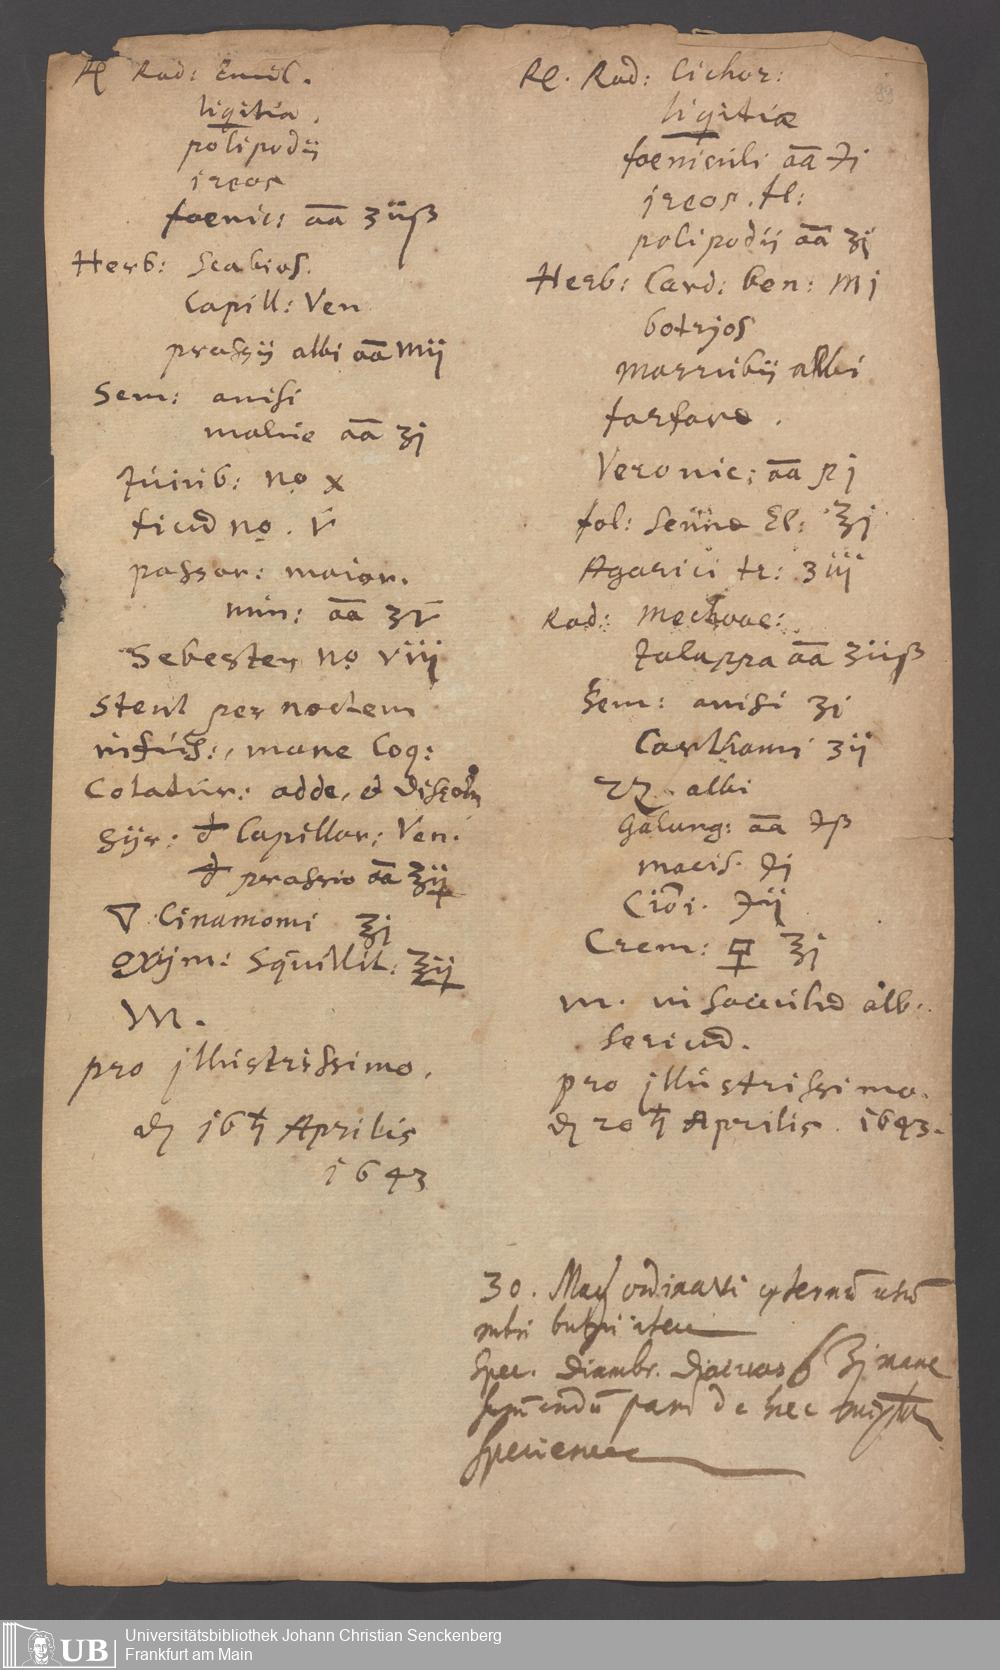 ℞ Rad: Enul.
liqiritia.
polipodij
jreos
foenic: āā ʒijß
Herb: Scabios.
Capill: Ven
prassij albi āā Mij
Sem: anisi
malue āā ʒj
Jujub: no x
ficuū no. v
passar: maior.
min: āā ʒv
Sebesten no viij
Stent per noctem
infus:, mane Coq:
Coladur: adde, et
Syr: d Capillor: Ven.
d prassio āā ℥ij
▽ Cinamomi ℥j
oxijm: Squillit: ℥ij
M.
pro jllustrissimo.
16 Aprilis
1643
℞. Rad: Cichor:
liqiritiæ
foeniculi āā ℈j
jreos. fl:
polipodij āā ʒj
Herb: Card: ben: Mj
botrjos
marrubij albi
farfare.
Veronic: āā pj
fol: Senne El: ℥j
Agarici tr: ʒiij
Rad: Mechoac:
Jalappa āā ʒijß
Sem: anisi ʒj
Carthami ʒij
albi
Galang: āā ℈ß
macis. ℈j
Ciōi. ℈ij
Crem: ℥j
m. in sacculū alb:
sericū.
pro jllustrissimo.
20 Aprilis. 1643.
30. Maij ordinavi externū usū
Spec. Diambr. ʒj mane
sumendū
99
UB Universitätsbibliothek Johann Christian Senckenberg
Frankfurt am Main